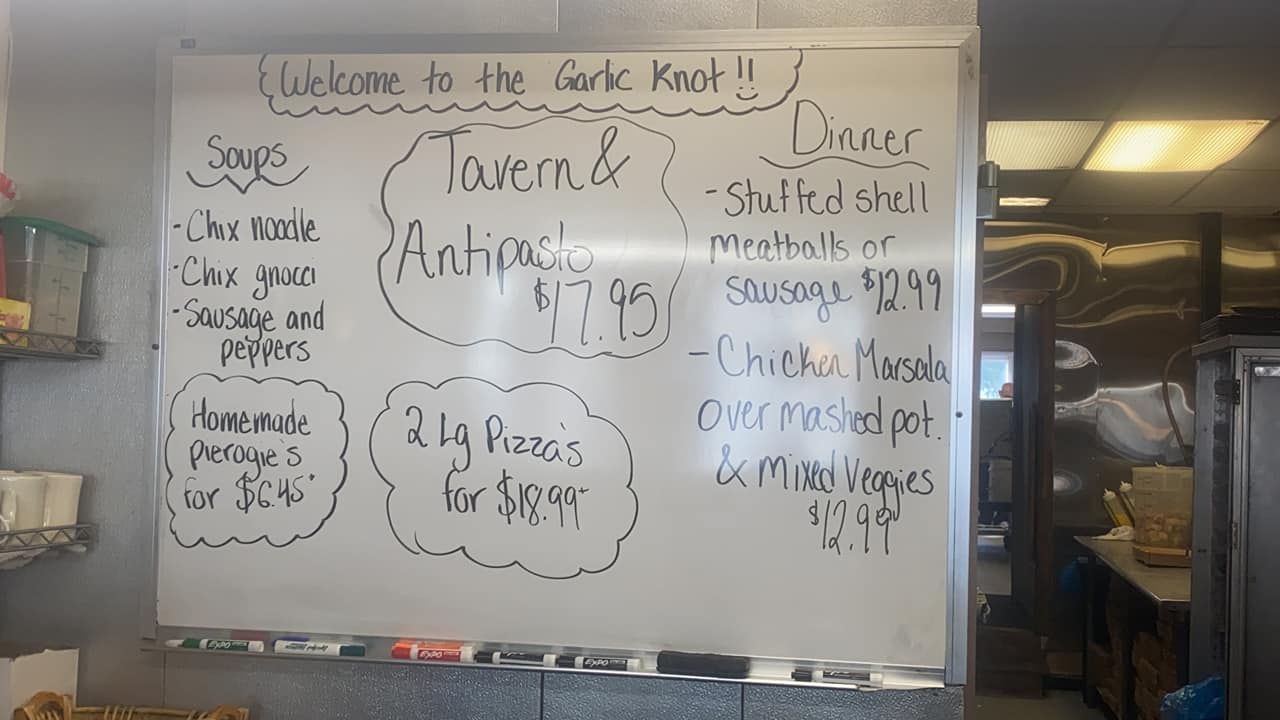 Welcome to the Garlic Knot!!
Soups
-Chix noodle
-Chix gnocci
-Sausage and
peppers
Homemade
pierogie's
for $6.45+
Tavern &
Antipasto
$17.95
2 Lg Pizza's
for $18.99+
Dinner
-Stuffed shell
meatballs or
sausage $12.99
-Chicken Marsala
over mashed pot.
& mixed veggies
$12.99
EXPO
EXPO
EXPO
EXPO